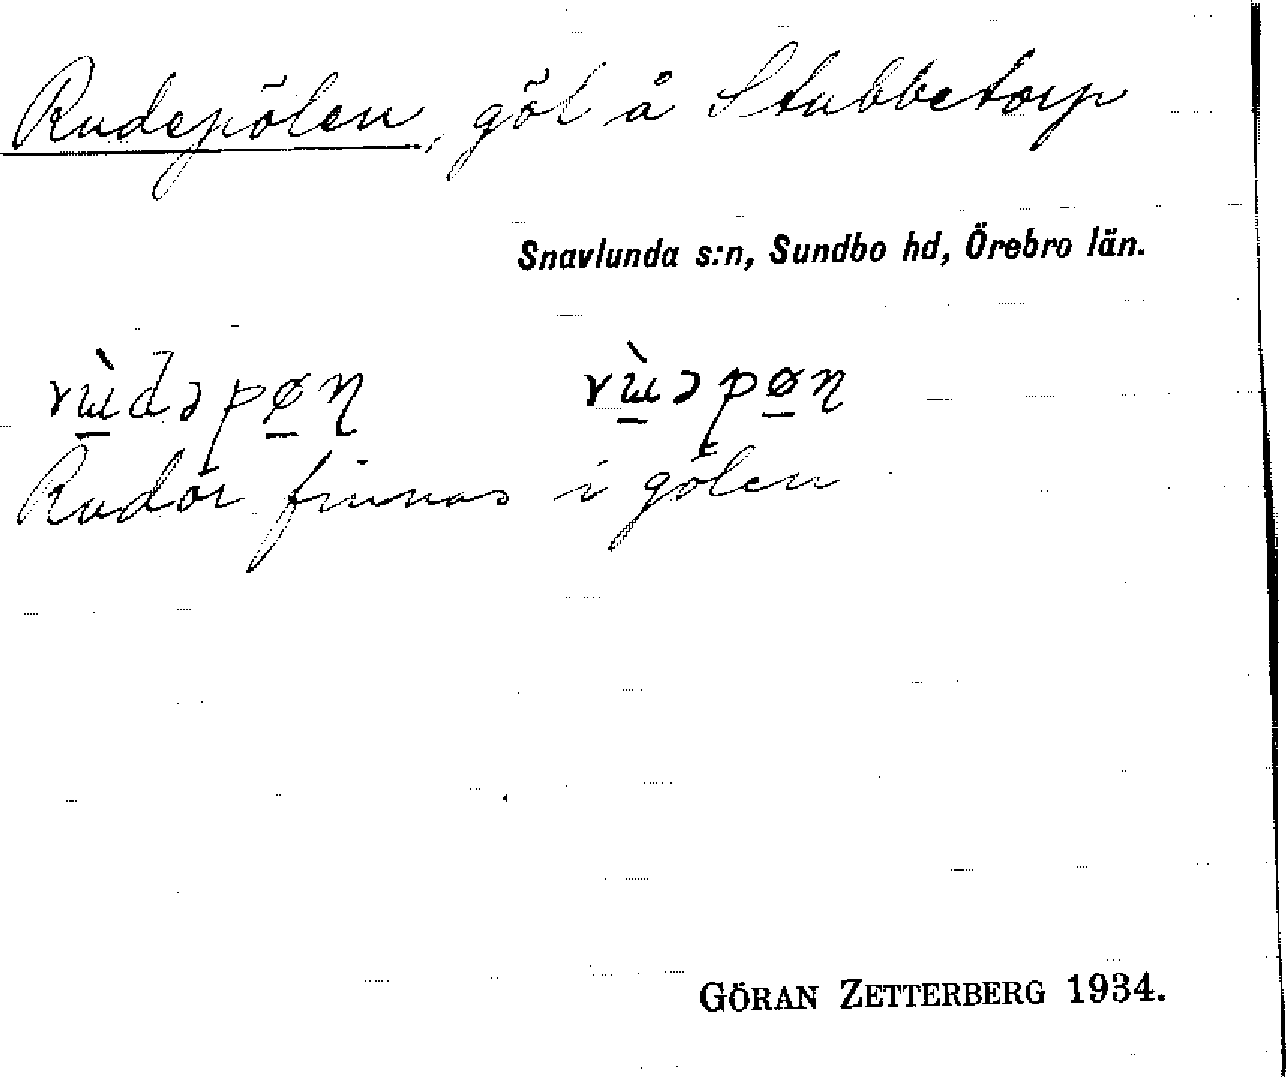 Rudepölen, göl å Stubbetorp
Snavlunda s:n, Sundbo hd, Örebro län.
rɯ̲̀dəpø̲ɳ rɯ̲̀əpø̲ɳ
Rudor finnas i gölen
GÖRAN ZETTERBERG 1934.